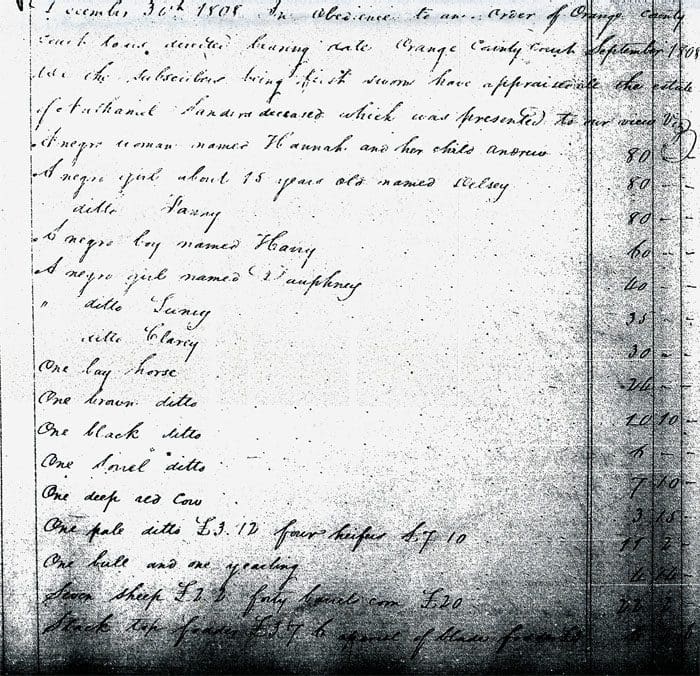 December 30th 1808 In Obedience to an Order of Orange County
Court to us directed bearing date Orange County Court September 1808
We the subscribers being first sworn have appraised all the estate
of Nathaniel Sanders deceased which was presented to our view Viz
A negro woman named Hannah and her child Andrew 80 -
A negro girl about 15 years old named 80 - -
ditto Fanny 80 - -
A negro boy named Harry 60 - -
A negro girl named 40 - -
" ditto 35 - -
ditto Clarey 30 - -
One bay horse 24 - -
One brown ditto 10 10 -
One black ditto 6 - -
One Sorrel ditto 7 10 -
One deep red Cow 3 15 -
One pale ditto £3.12 four heifers £7 10 11 2 -
One bull and one yearling 4
Seven sheep £2 2 forty barrel corn £20 22 2
Stack top fodder £3 7 6 of blade